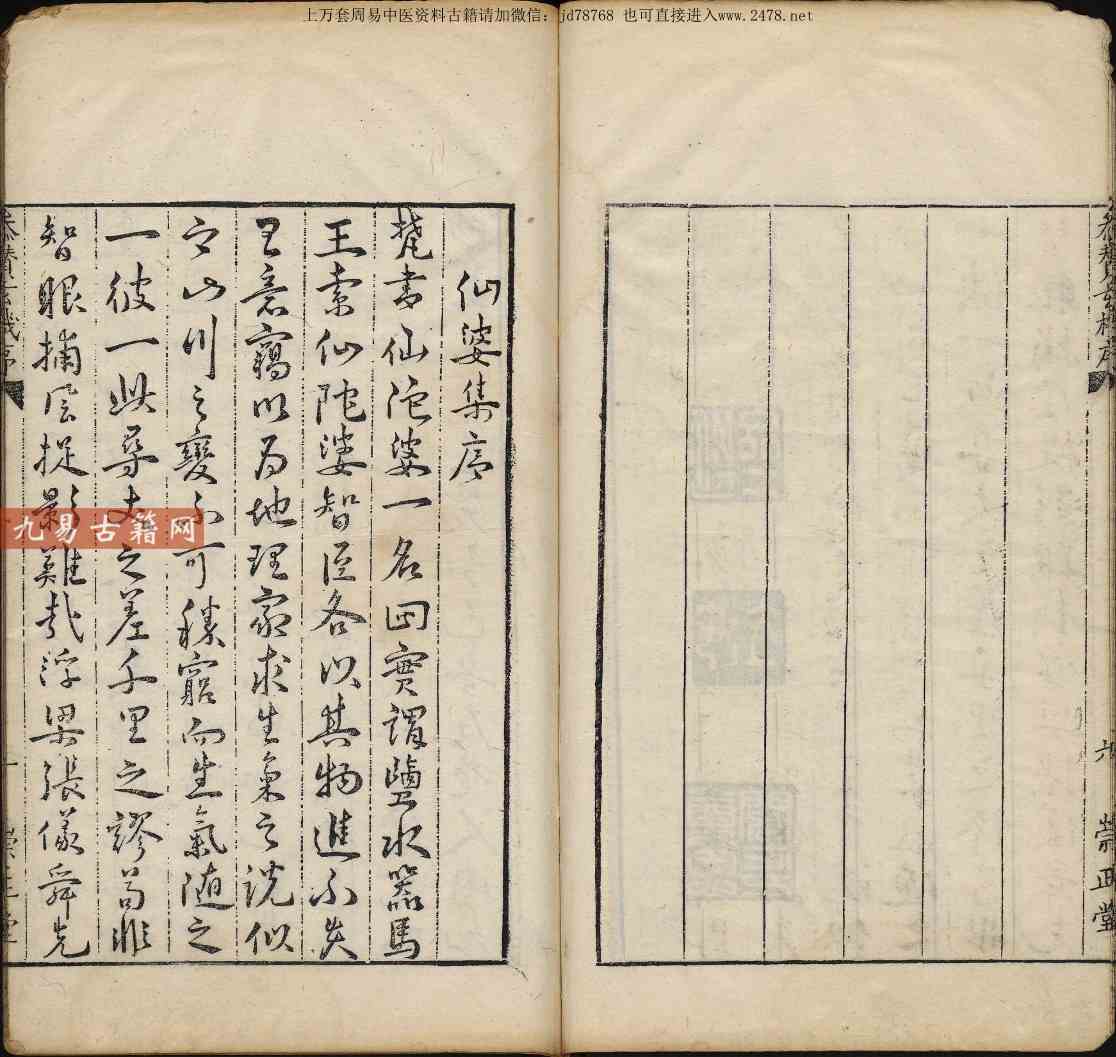 上万套周易中医资料古籍请加微信：jd78768 也可直接进入www.2478.net
參贊玄機序
六
崇正堂
仙婆集序
梵書仙陀婆一名四實謂鹽水器馬
王索仙陀婆智臣各以其物進不失
王意竊以為地理家求生氣之說似
之山川之變不可勝窮而生氣隨之
一彼一此尋丈之差千里之謬苟非
智眼捕風捉影難哉浮梁張儀舜先
參贊玄機序
一
崇正堂
九易古籍网